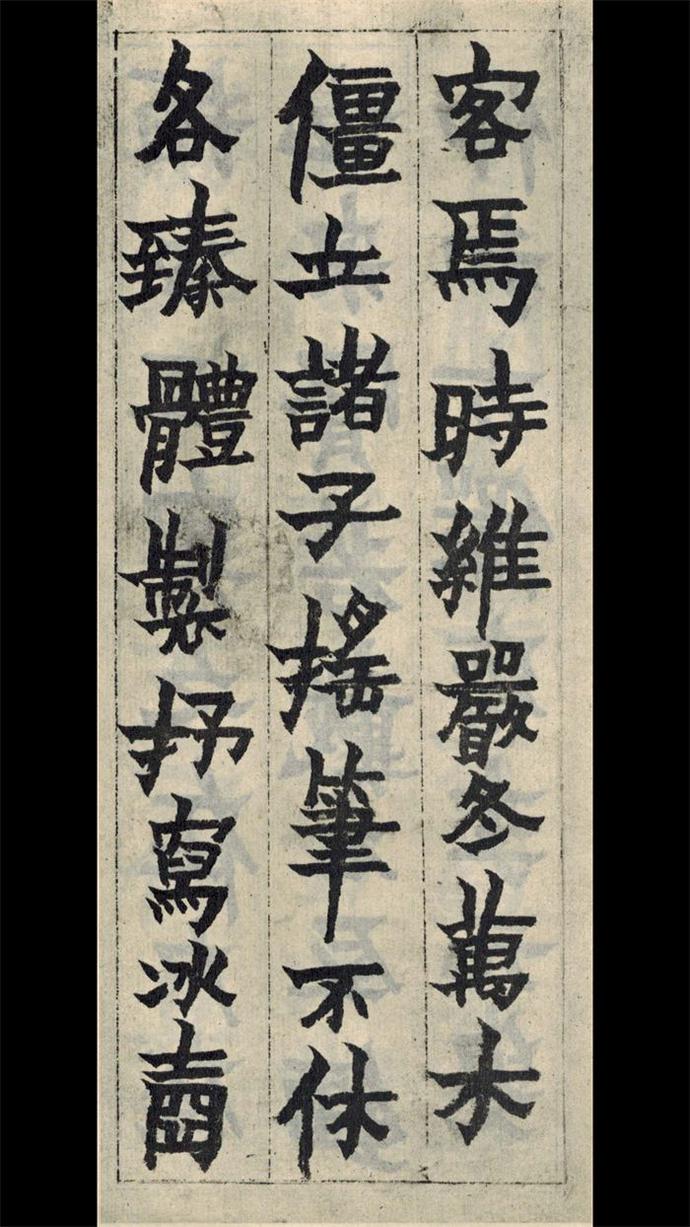 客焉時維嚴冬萬木
僵立諸子搖筆不休
各臻體製抒寫冰齒